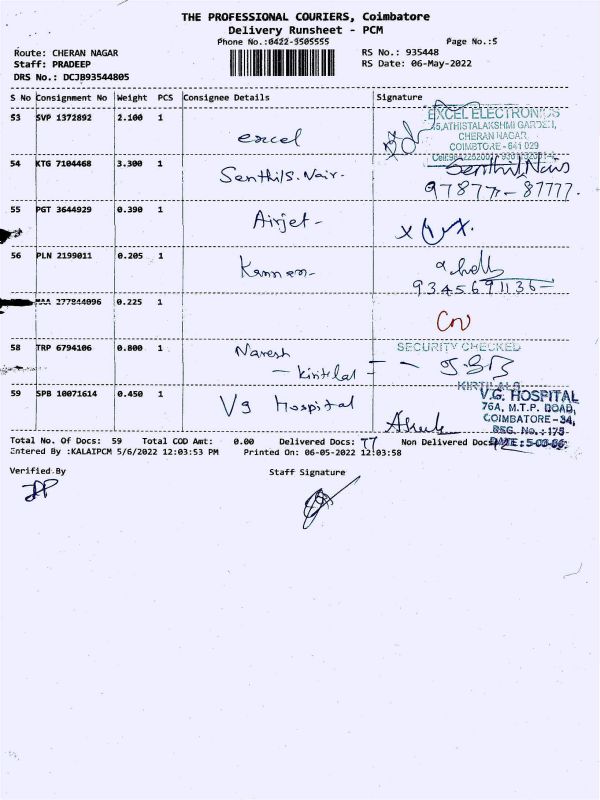 THE PROFESSIONAL COURIERS, Coimbatore
Delivery Runsheet - PCM
Phone No.:0422-3505555
Page No.:5
Route: CHERAN NAGAR
RS No.: 935448
Staff: PRADEEP
RS Date: 06-May-2022
DRS No.: DCJB93544805
S No Consignment No Weight PCS Consignee Details Signature
53 SVP 1372892 2.100 1
excel
EXCEL ELECTRONICS
CHERAN NAGAR
COIMBTORE - 641 029
54 KTG 7104468 3.300 1
Senthil S. Nair.
Senthil Nair
97877-87777.
55 PGT 3644929 0.390 1
Airjet
56 PLN 2199011 0.205 1
Kannan
9345691136
277844096 0.225 1
58 TRP 6794106 0.800 1
Naresh
SECURITY CHECKED
KIRTILALS
59 SPB 10071614 0.450 1
Vg Hospital
V.G. HOSPITAL
76A, M.T.P. ROAD,
COIMBATORE - 34,
REG. No. : 175
Total No. Of Docs: 59 Total COD Amt: 0.00 Delivered Docs: 77 Non Delivered Docs
Entered By :KALAIPCM 5/6/2022 12:03:53 PM Printed On: 06-05-2022 12:03:58
Verified By
Staff Signature